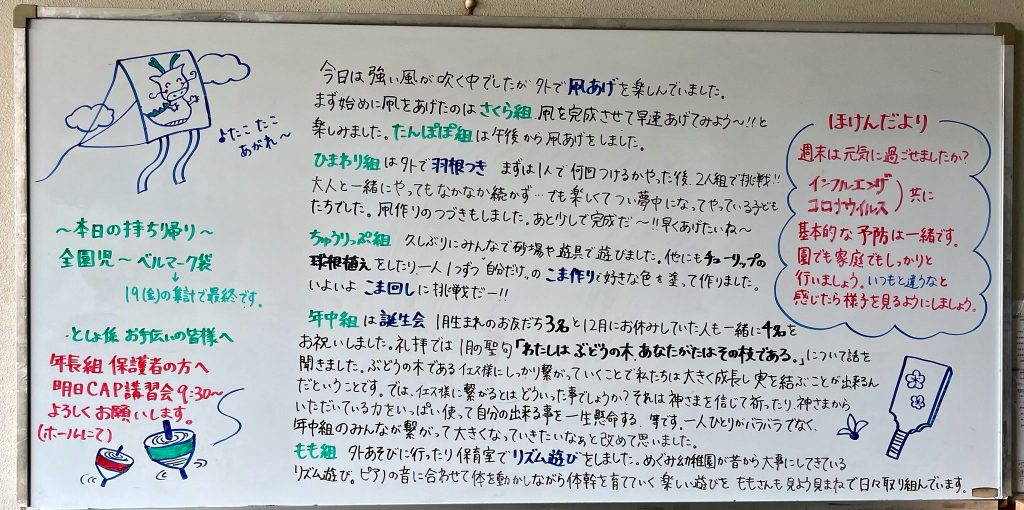 ♪たこ たこ
あがれ〜
〜本日の持ち帰り〜
全園児〜ベルマーク袋
↓
19(金)の集計で最終です。
・としょ係 お手伝いの皆様へ
年長組 保護者の方へ
明日CAP講習会 9:30〜
よろしくお願いします。
(ホールにて)
今日は強い風が吹く中でしたが外で凧あげを楽しんでいました。
まず始めに凧をあげたのはさくら組 凧を完成させて早速あげてみよう〜!!と
楽しみました。たんぽぽ組は午後から凧あげをしました。
ひまわり組は外で羽根つき まずは1人で何回つけるかやった後、2人組で挑戦!!
大人と一緒にやってもなかなか続かず…でも楽しくてつい夢中になってやっている子ども
たちでした。凧作りのつづきもしました。あと少しで完成だ〜!!早くあげたいね〜
ちゅうりっぷ組 久しぶりにみんなで砂場や遊具で遊びました。他にもチューリップの
球根植えをしたり、一人1つずつ"自分だけ"のこま作りと好きな色を塗って作りました。
いよいよこま回しに挑戦だー!!
年中組は誕生会 1月生まれのお友だち3名と12月にお休みしていた人も一緒に4名を
お祝いしました。礼拝では1月の聖句「わたしはぶどうの木、あなたがたはその枝である。」について話を
聞きました。ぶどうの木であるイエス様にしっかり繋がっていくことで私たちは大きく成長し実を結ぶことが出来るん
だということです。では、イエス様に繋がるとはどういった事でしょうか?それは神さまを信じて祈ったり、神さまから
いただいている力をいっぱい使って自分の出来る事を一生懸命する、等です。一人ひとりがバラバラでなく、
年中組のみんなが繋がって大きくなっていきたいなぁと改めて思いました。
もも組 外あそびに行ったり保育室でリズム遊びをしました。めぐみ幼稚園が昔から大事にしてきている
リズム遊び。ピアノの音に合わせて体を動かしながら体幹を育てていく楽しい遊びを ももさんも見よう見まねで日々取り組んでいます。
ほけんだより
週末は元気に過ごせましたか?
インフルエンザ
コロナウイルス)共に
基本的な予防は一緒です。
園でも家庭でもしっかりと
行いましょう。いつもと違うなと
感じたら様子を見るようにしましょう。